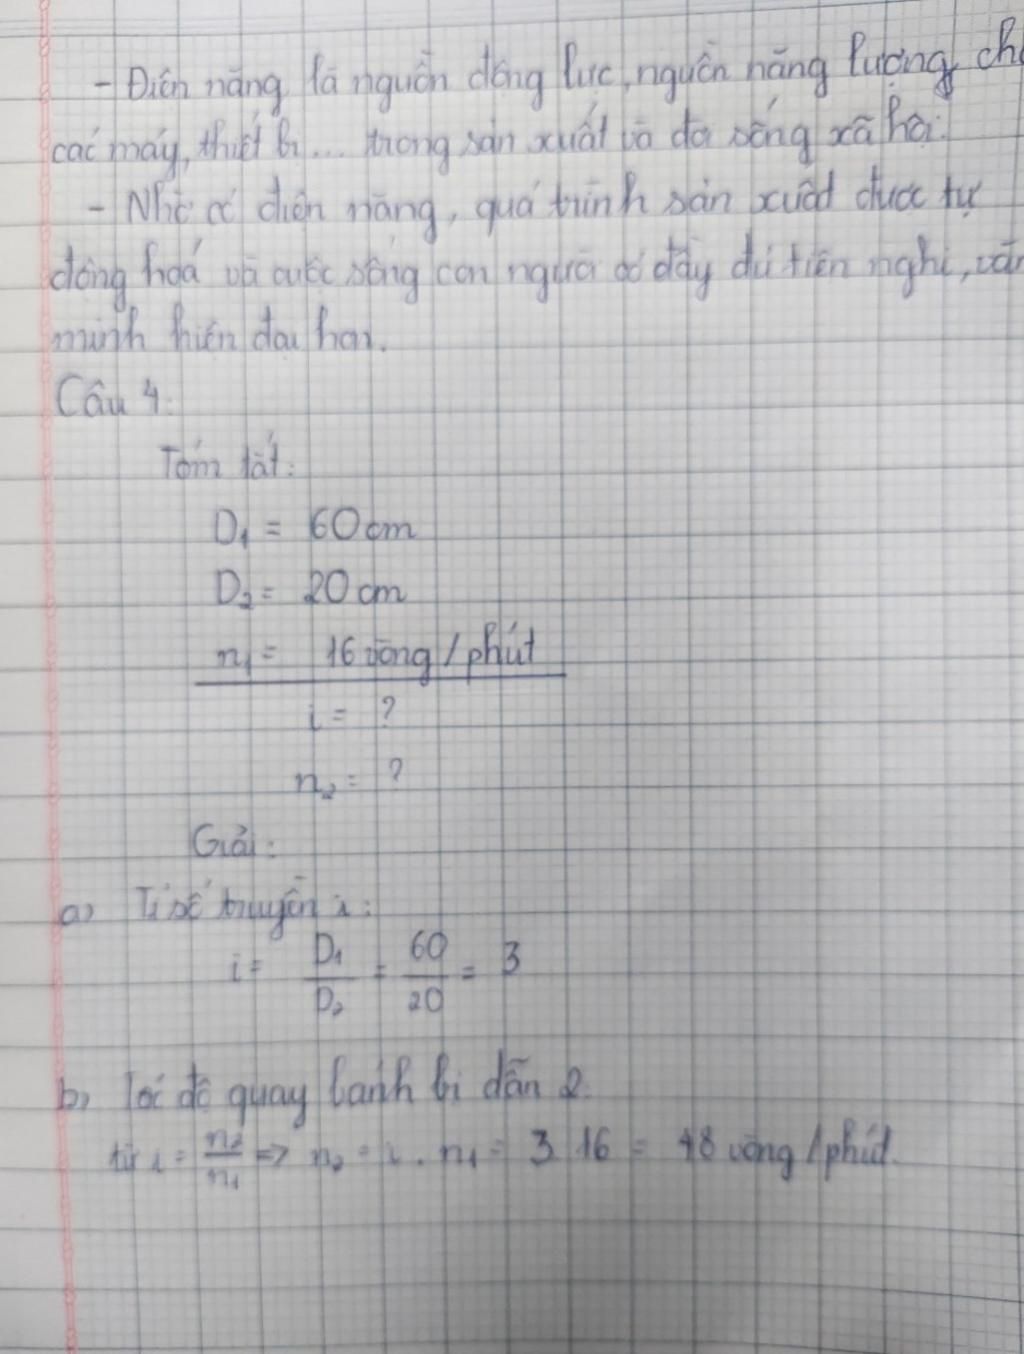 - Điện năng là nguồn động lực, nguồn năng lượng ch
các máy, thiết bị... trong sản xuất và đời sống xã hội.
- Nhờ có điện năng, quá trình sản xuất được tự
động hoá và cuộc sống con người có đầy đủ tiện nghi, văn
minh hiện đại hơn.
Câu 4:
Tóm tắt:
D₁ = 60 cm
D₂ = 20 cm
n₁ = 16 vòng / phút
i = ?
n₂ = ?
Giải:
a) Tỉ số truyền i:
i = D₁/D₂ = 60/20 = 3
b) Tốc độ quay bánh bị dẫn 2.
từ i = n₂/n₁ => n₂ = i . n₁ = 3 . 16 = 48 vòng / phút.